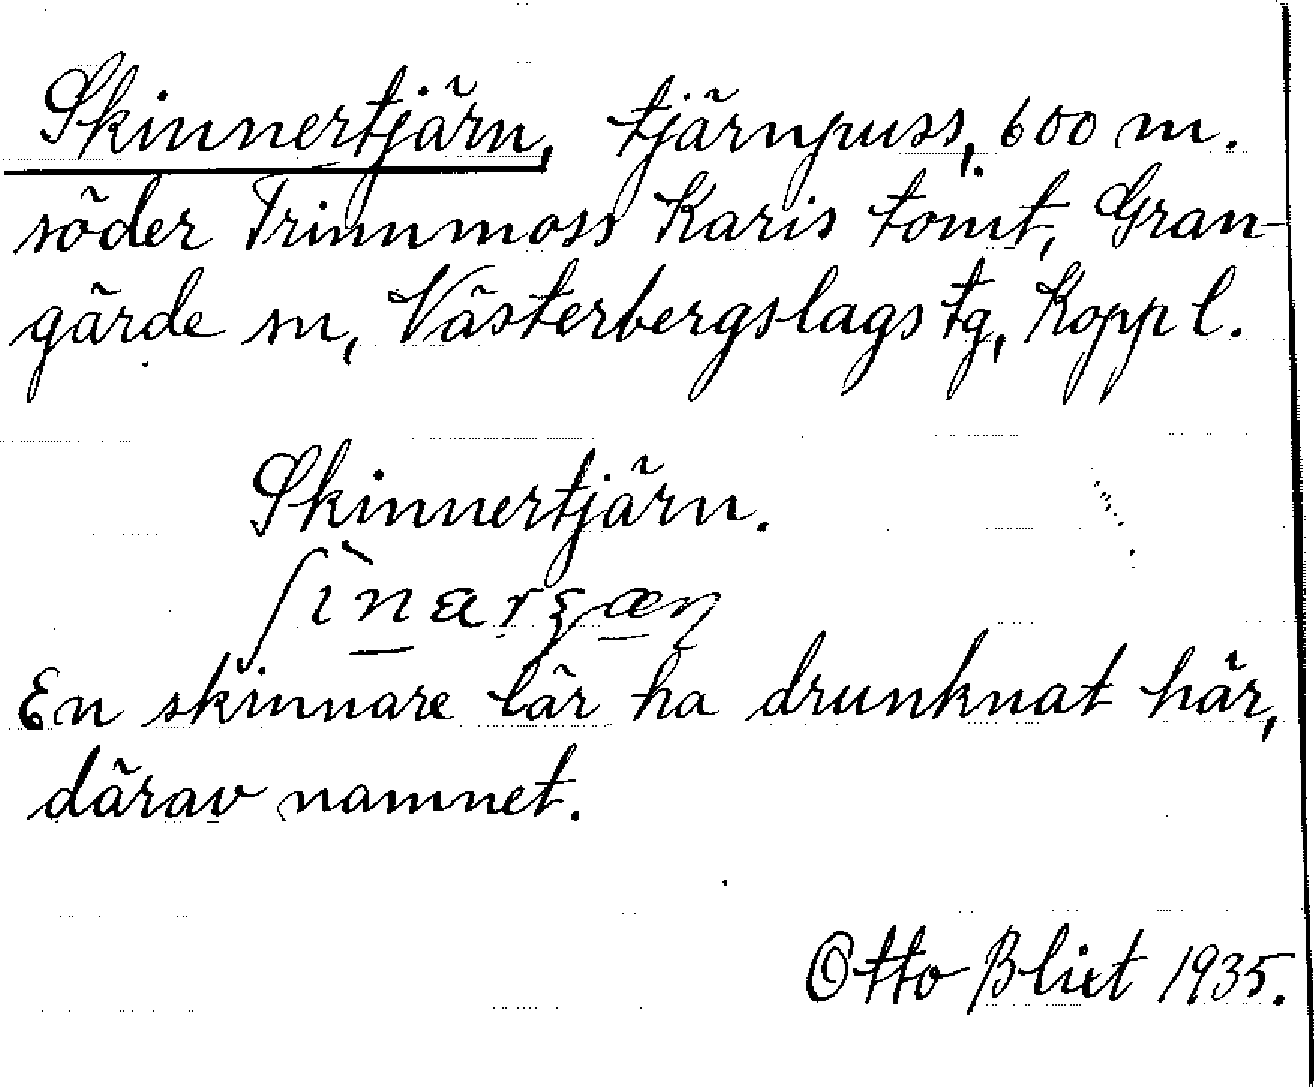 Skinnertjärn, tjärnpuss, 600 m.
söder Trinnmoss Karis tomt, Gran-
gärde sn, Västerbergslags tg, Kopp l.
Skinnertjärn.
En skinnare lär ha drunknat här,
därav namnet.
Otto Blixt 1935.